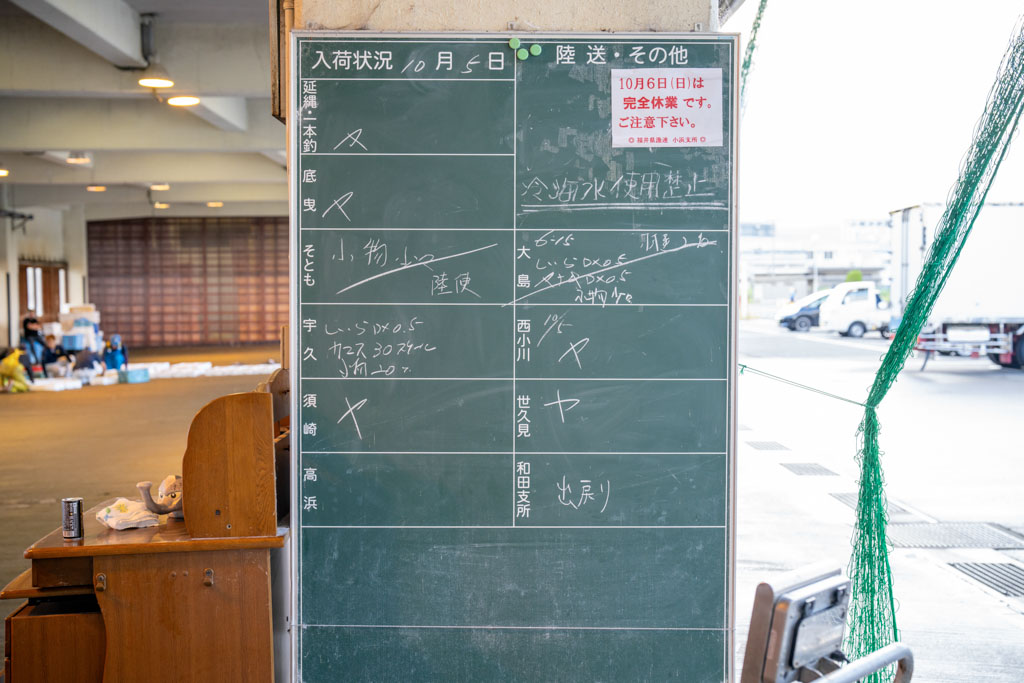 入荷状況 10月5日
陸送・その他
10月6日(日)は
完全休業 です。
ご注意下さい。
◎ 福井県漁連 小浜支所 ◎
冷海水使用禁止
延縄・一本釣
ヤ
底曳
ヤ
そとも
小物少々
陸便
大島
6-15
しいらD×0.5
D×0.5
小物少々
宇久
しいらD×0.5
カマス30スチール
西小川
10/5
ヤ
須崎
ヤ
世久見
ヤ
高浜
和田支所
出戻り